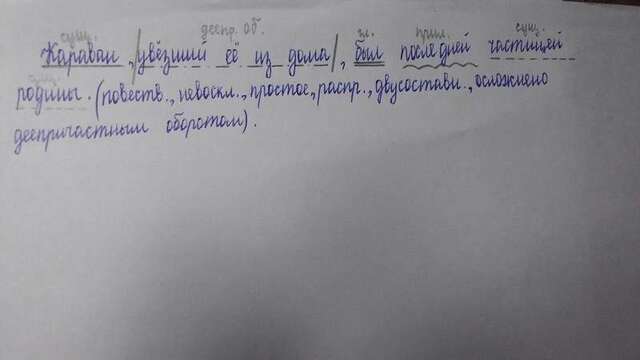 сущ. деепр. об. гл. прил. сущ.
Караван, /увёзший её из дома/, был последней частицей
сущ.
родины. (повеств., невоскл., простое, распр., двусоставн., осложнено
деепричастным оборотом).